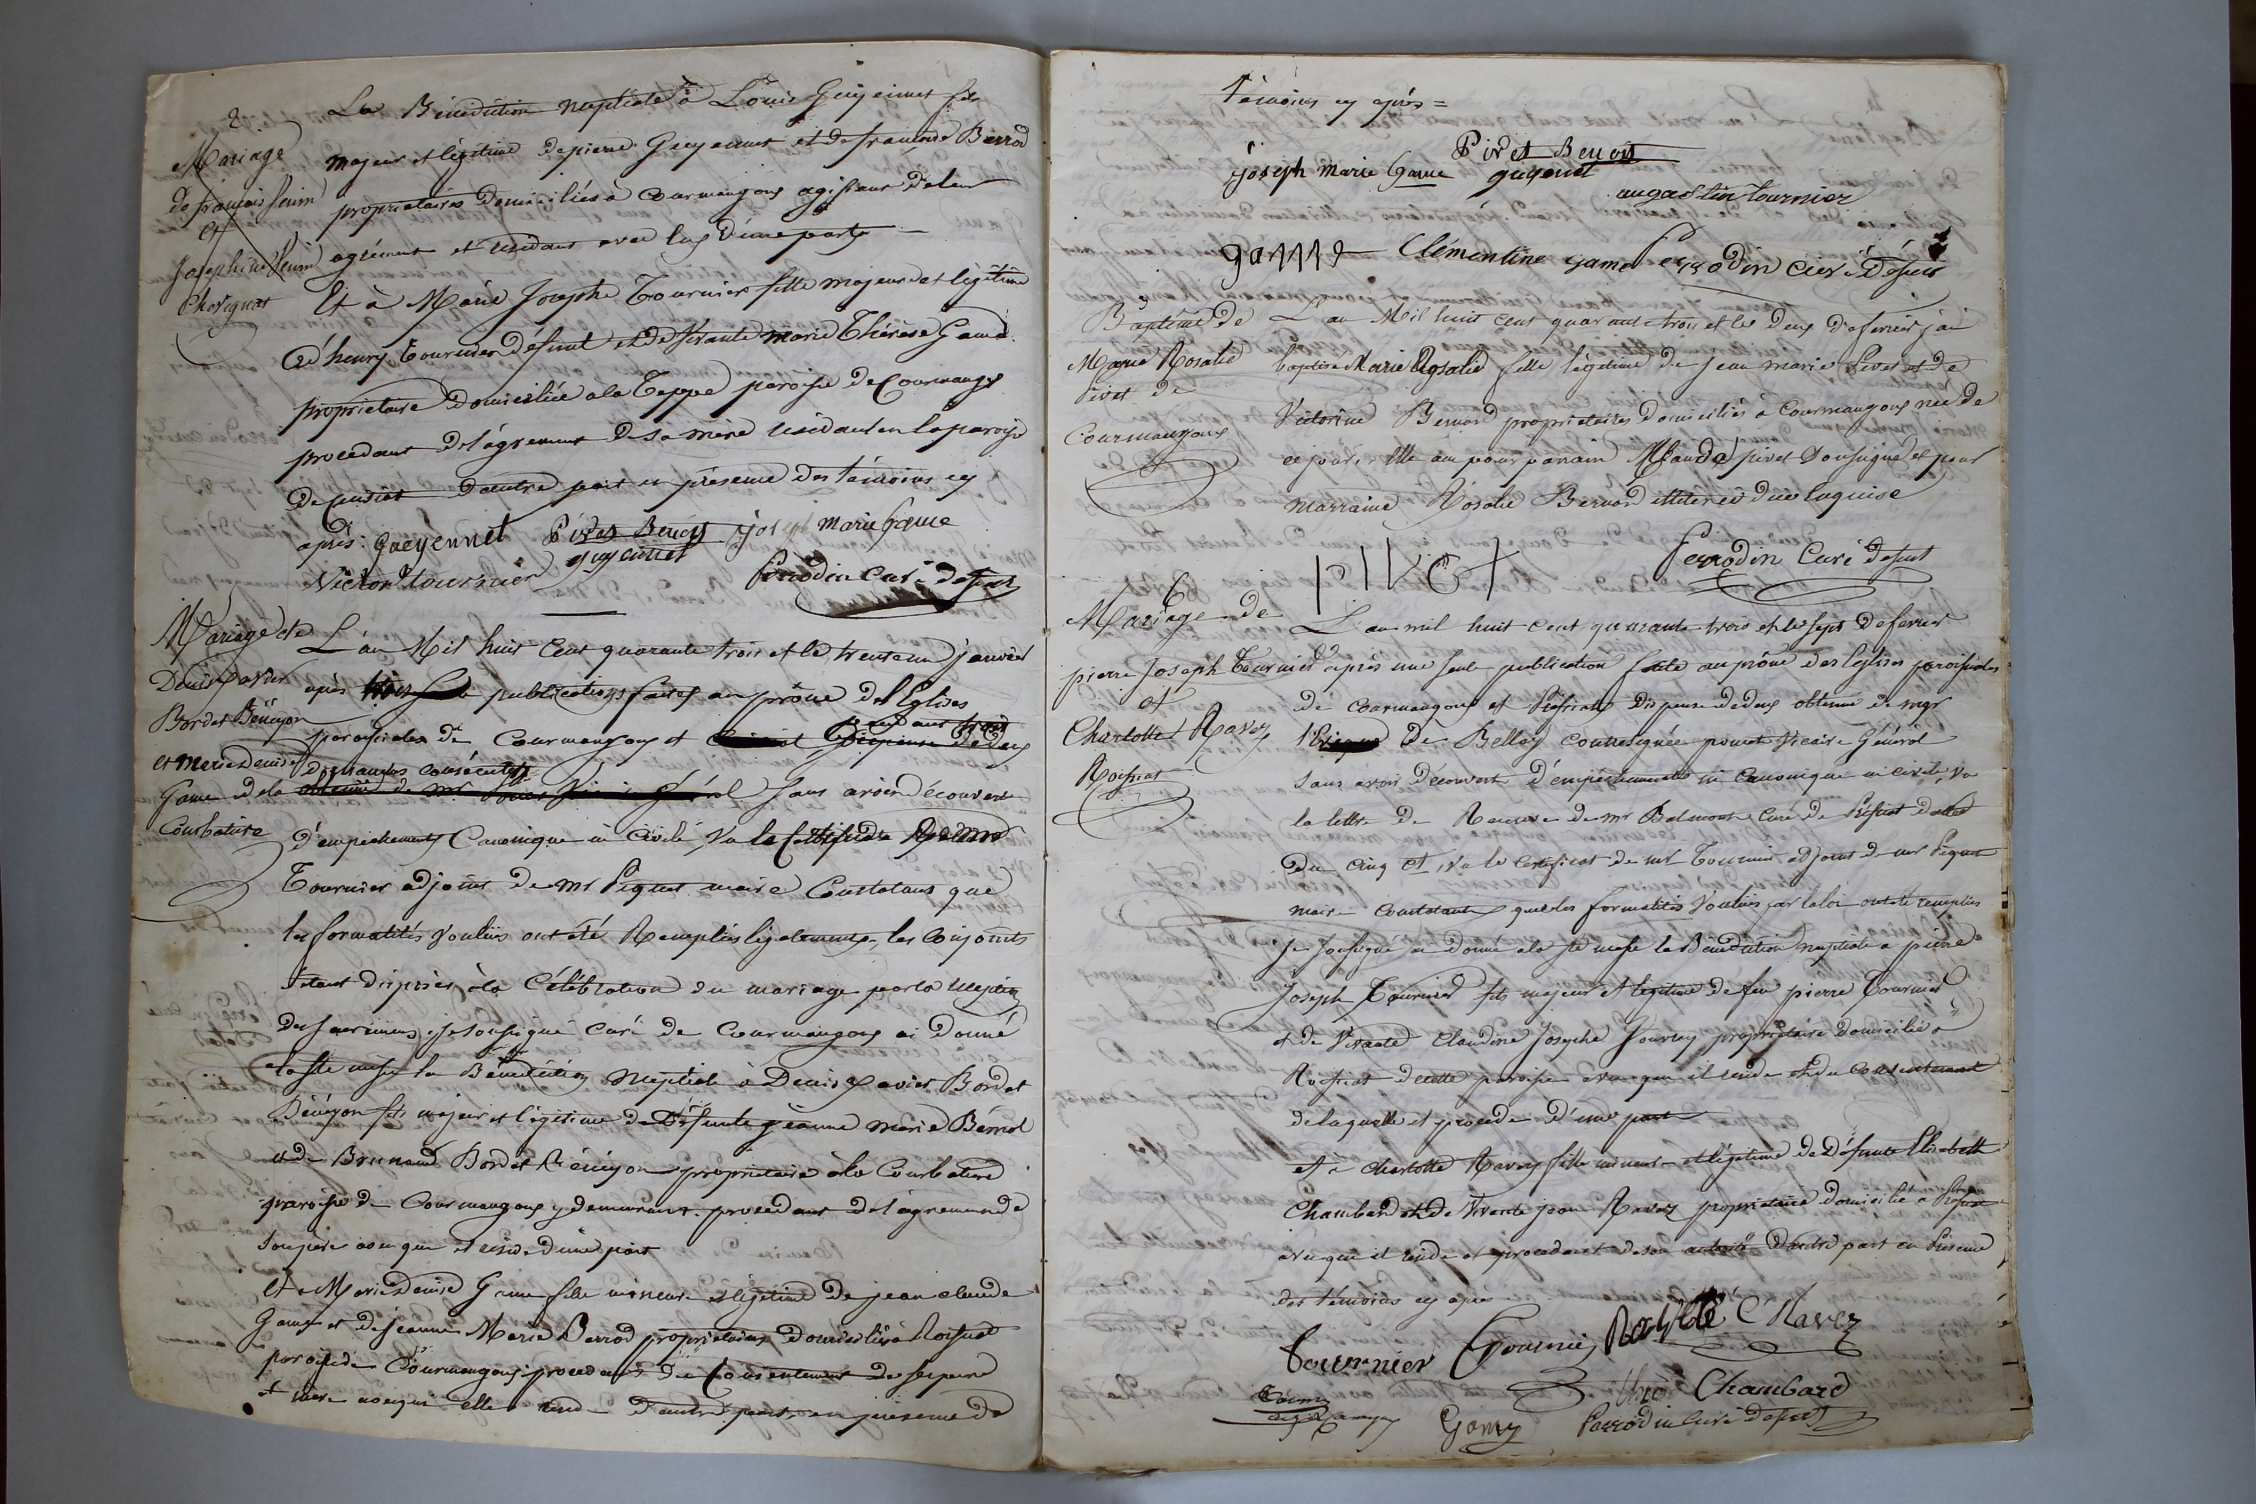 La Bénédiction nuptiale à Louis Guyennet fils
majeur et légitime de pierre Guyennet et de francoise Berrod
propriétaires domiciliés à Courmangoux agissant de leur
agrément et résidant avec lux d'une part
Et à Marie Josephe Tournier fille majeure et légitime
d'henry Tournier défunt et de vivante Marie Thérèse Game
propriétaire domiciliée a la Teppe paroisse de Courmangoux
procedant de l'agrément de sa mère résidant en la paroisse
de d'autre part en présence des témoins cy
après: Gueyennet Pivet Benoit joseph marie Game
Victor tournier guyennet
Perrodin Curé desser
2
Mariage
de françois
et
Josephine
Mariage de
Denis xavier
Bordet Bénéyon
et Marie denise
Game de la
Courbature
L'an Mil huit Cent quarante trois et le trente un janvier
après publications faites au prône des Eglises
paroissiales de Courmangoux et pendant trois
dimanches consécutifs
sans avoir découvert
d'empêchements Canonique ni Civile, Vu le Certificat de Mr
Tournier adjoint de Mr Piquet maire Constatant que
les formalités voulues ont été Remplies légalement, les Conjoints
s'étant disposés à la Célébration du mariage par la réception
des sacrements, je soussigné curé de Courmangoux ai donné
a la ste messe la Bénédiction Nuptiale à Denis xavier Bordet
Bénéyon fils majeur et légitime de Défunte jeanne Marie
et de Brunand Bordet Bénéyon propriétaire à la Courbature
paroisse de Courmangoux y demeurant procedant de l'agrément de
son père avec qui il réside d'une part
Et a Marie Denise Game fille mineure et légitime de jean claude
Game et de jeanne Marie Berrod propriétaires domiciliés à Roissiat
paroisse de Courmangoux procedant du Consentement de ses père
et mère avec qui elle réside d'autre part, en présence de
Témoins cy après =
joseph marie Game Pivet Benoit
guyenet
augastin tournier
gamme Clémentine game Perrodin curé desser
Baptême de
Marie Rosalie
Pivet de
Courmangoux
L'an Mil huit cent quarante trois et le deux de fevrier j'ai
baptisé Marie Rosalie fille légitime de jean marie Pivet et de
Victorine Bernard propriétaires domiciliés à Courmangoux née de
ce jour, Elle a eu pour parrain Claude pivet soussigné et pour
marraine Rosalie Bernard illiterée due enquise
pivet Perrodin Curé desser
6
Mariage de
pierre Joseph Tournier
et
Charlotte Ravez
Roissiat
L'an mil huit cent quarante trois et le sept de fevrier
après une seule publication faite au prône des Eglises paroissiales
de Courmangoux et Préssiat, dispense de deux obtenue de mgr
de Belley contresignée poncet Vicaire Général
sans avoir découvert d'empêchements ni canonique ni civile, Vu
la lettre de Recours de mr Belmont curé de Préssiat datée
du cinq et Vu le certificat de mr Tournier adjoint de mr Piquet
maire constatant que les formalités Voulues par la loi ont été remplies
je soussigné ai donné a la ste messe la Bénédiction Nuptiale a pierre
Joseph Tournier fils majeur et légitime de feu pierre Tournier
et de Vivante Claudine Josephe propriétaire domiciliée a
Roissiat de cette paroisse avec qui il réside et du consentement
de laquelle il procede d'une part
et à Charlotte Ravez fille mineure et légitime de Défunte Elisabeth
Chambard et de Vivant jean Ravez propriétaire domicilié a Préssiat
avec qui il réside et procedant de son autorité d'autre part en présence
des témoins cy après
tournier Tournier C Ravez
Chambard
Gamy Perrodin Curé desser